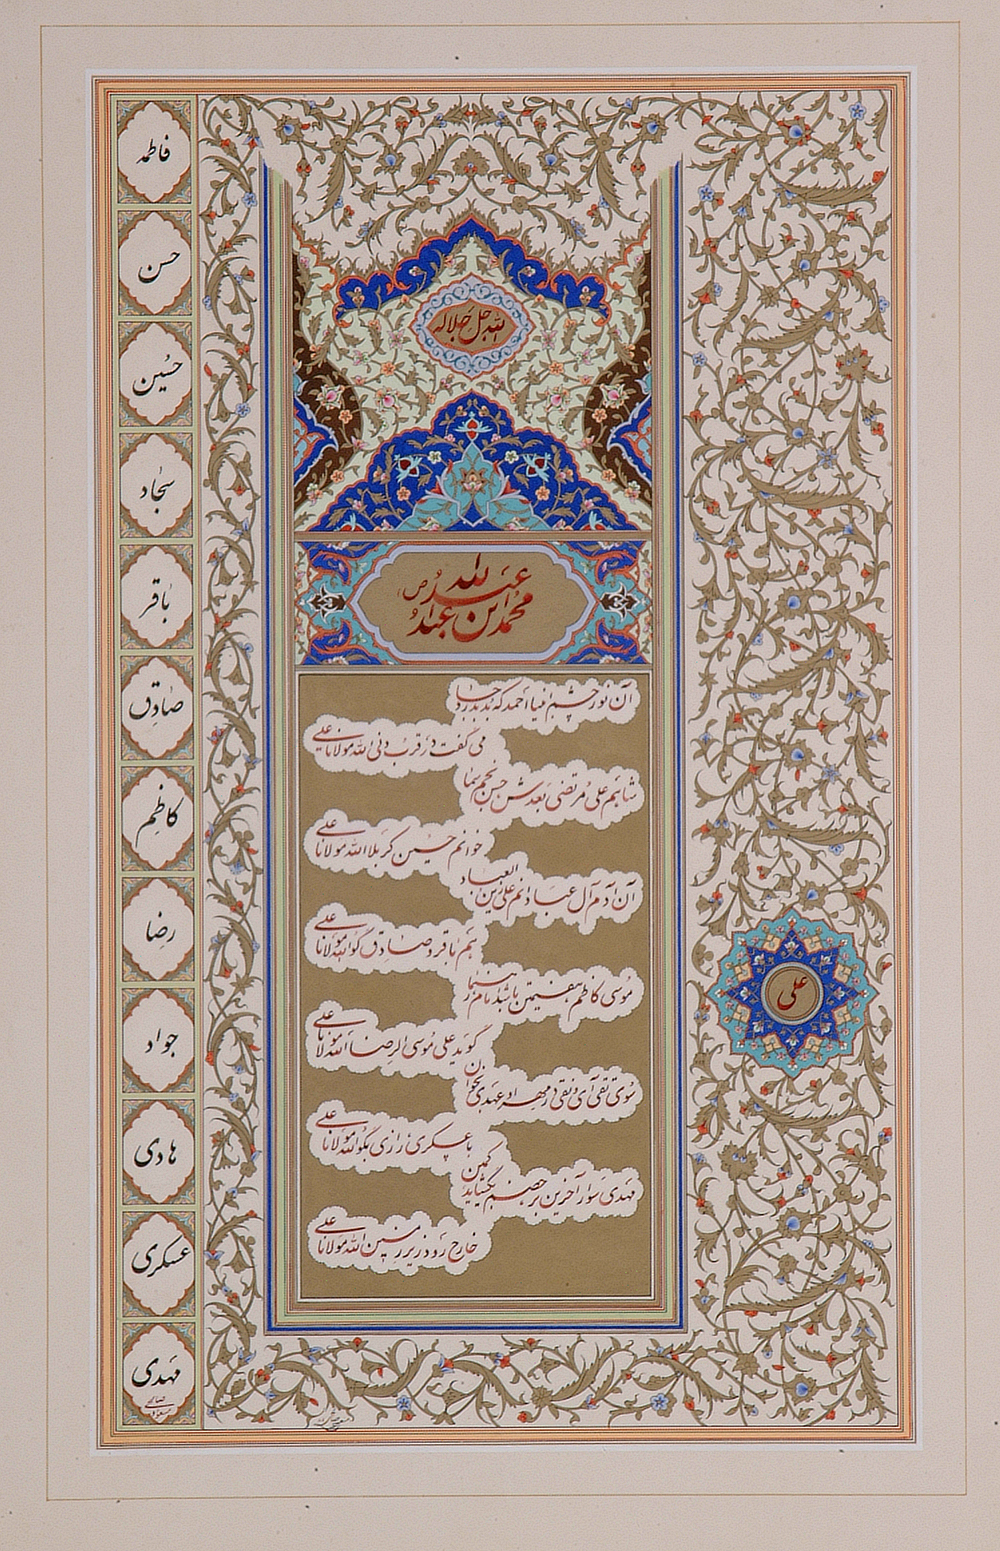 الله جل جلاله
محمد ابن عبدالله (ص)
آن نور چشم انبیا احمد که بد بدر دجا
می گفت در قرب دنی الله مولانا علی
شاهم علی مرتضی بعدش حسن نجم سما
خوانم حسین کربلا الله مولانا علی
آن آدم آل عبا دانم علی زین العباد
هم باقر و صادق گوا الله مولانا علی
موسی کاظم هفتمین باشد امام و رهنما
گوید علی موسی الرضا الله مولانا علی
سوی تقی آی و نقی در مهر او عهدی بخوان
با عسکری رازی بگو الله مولانا علی
مهدی سوار آخرین بر خصم بگشاید کمین
خارج رود زیر زمین الله مولانا علی
علی
فاطمه
حسن
حسین
سجاد
باقر
صادق
کاظم
رضا
جواد
هادی
عسکری
مهدی